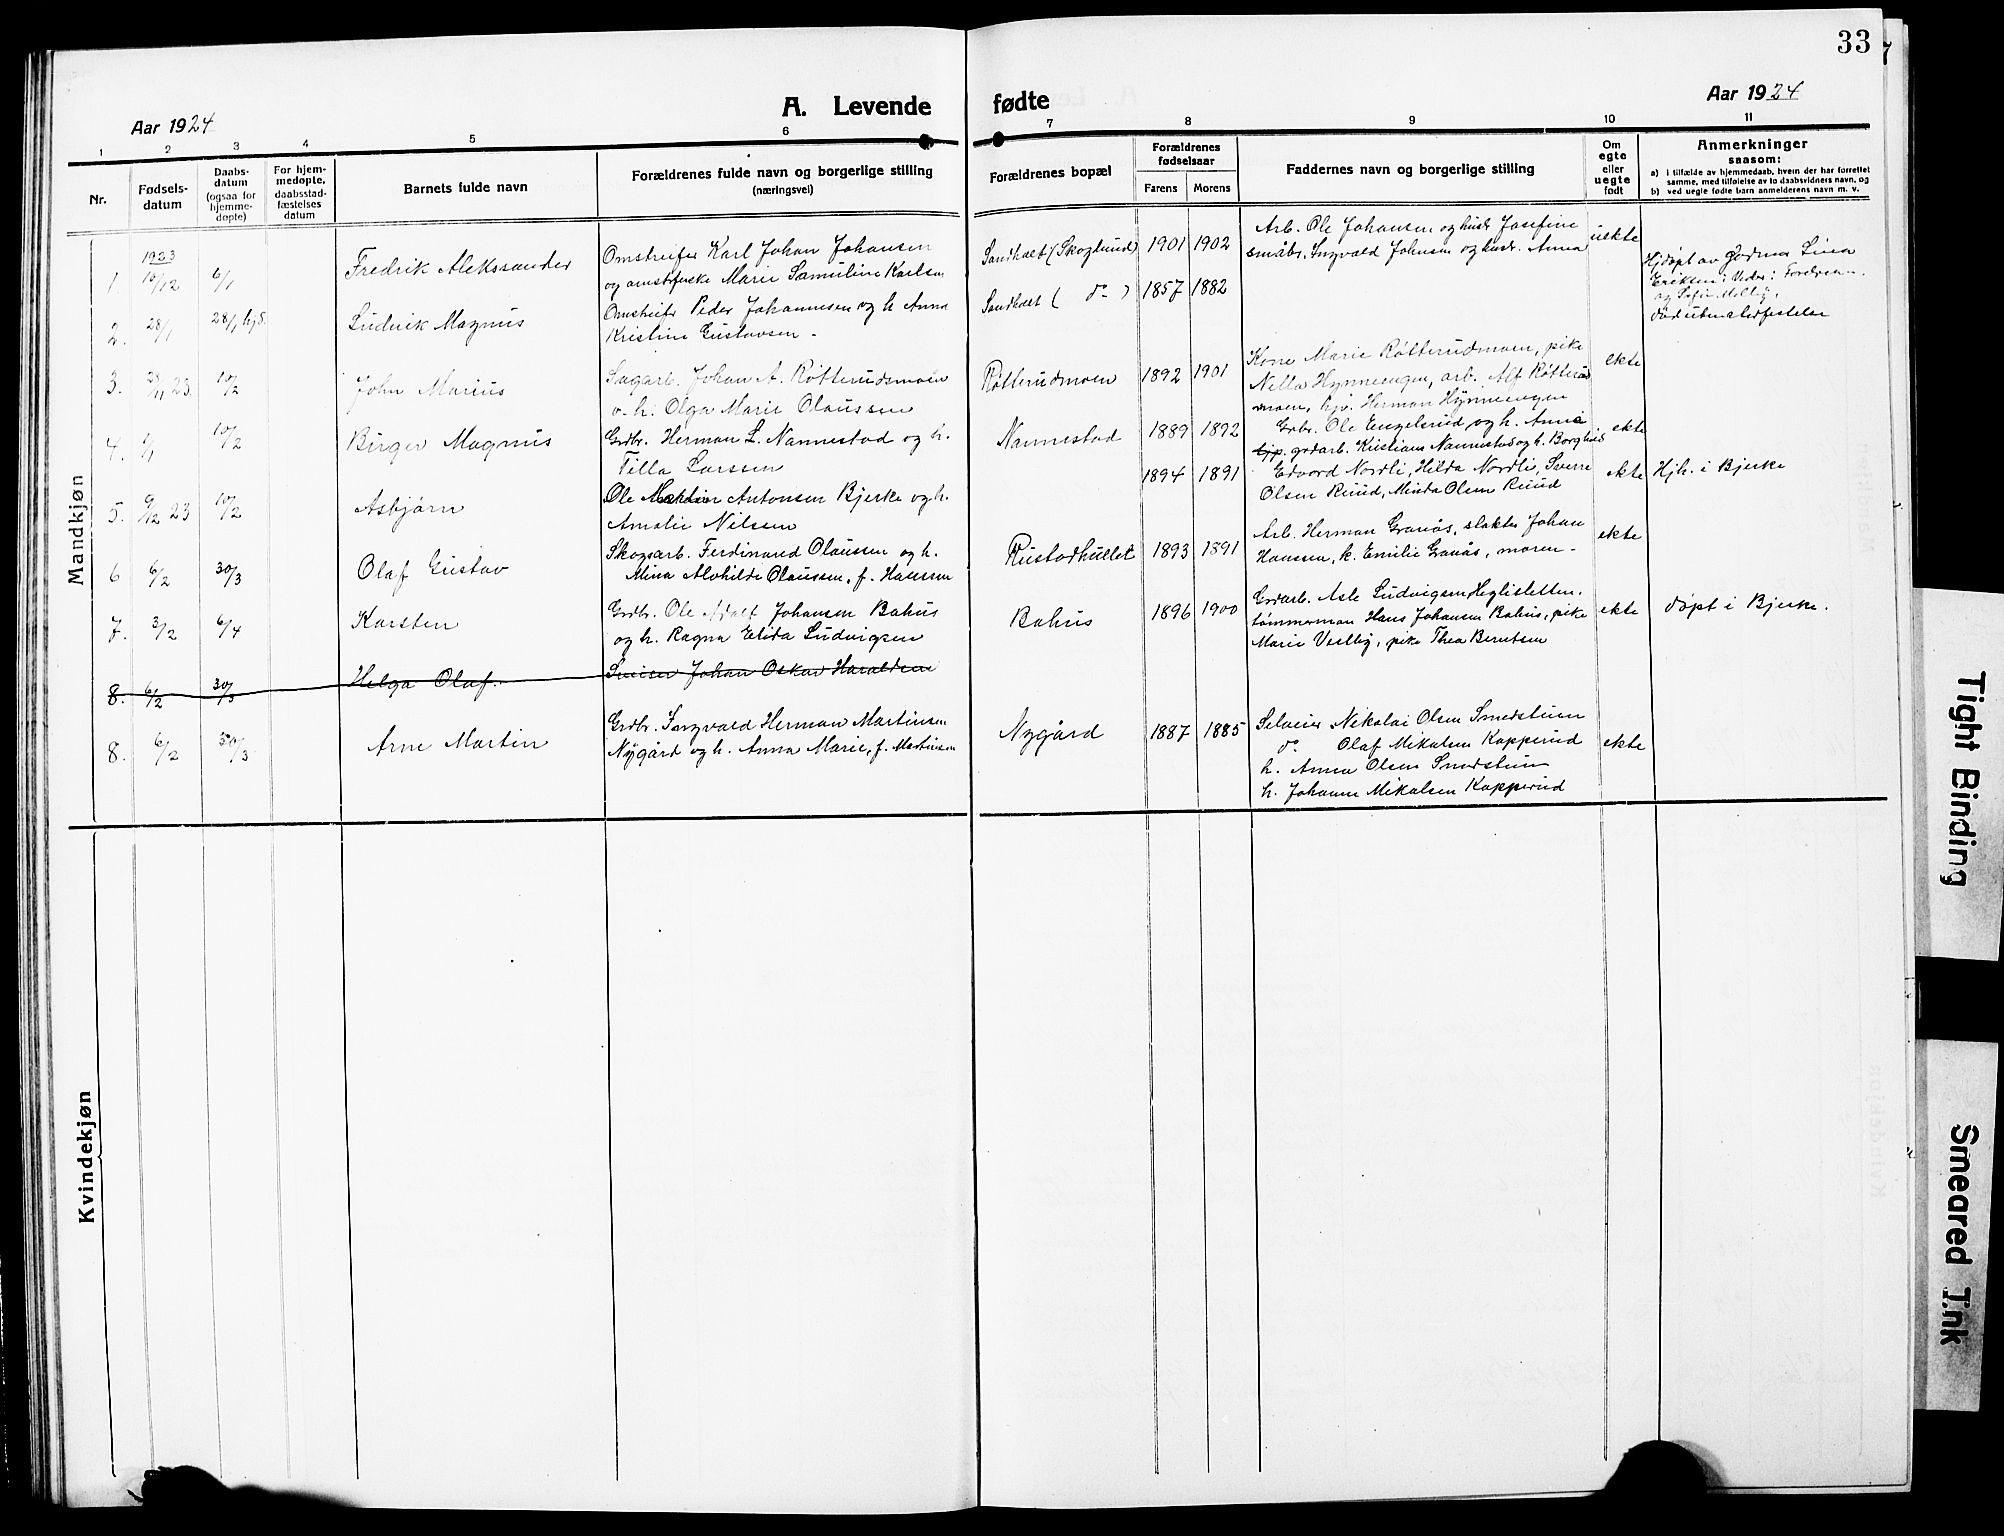 33
A. Levende
fødte
Aar 1924
Aar 1924
1 2 3 4 5 6
7 8 9 10 11
Nr.
Fødsels-
datum
Daabs-
datum
(ogsaa for
hjemme-
døpte)
For hjem-
medøpte,
daabsstad-
fæstelses
datum
Barnets fulde navn
Forældrenes fulde navn og borgerlige stilling
(næringsvei)
Forældrenes bopæl
Forældrenes
fødselsaar
Farens
Morens
Faddernes navn og borgerlige stilling
Om
egte
eller
uegte
født
Anmerkninger
saasom:
a) i tilfælde av hjemmedaab, hvem der har forrettet
samme, med tilføielse av to daabsvidners navn, og
b) ved uegte fødte barn anmelderens navn m. v.
Mandkjøn
1923
1. 10/12 6/1 Fredrik Alekssander
Omstreifer Karl Johan Johansen
og Marie Samuline Karlsen
Sandholt (Skoglund) 1901 1902
Arb. Ole Johansen og hust Josefine
småbr. Ingvald Johnsen og hustr. Anna
uekte
2. 28/1 28/1 hjd. Ludvik Magnus
Omstreifer Peder Johannesen og h Anna
Kristine Gustavsen
Sandholt ( do ) 1857 1882
Hjdøpt av Jordmor Lina
Eriksen i
og Sofie Melby.
død uten stadfestelse
3. 21/11 23 10/2 John Marius
Sagarb. Johan A. Røtterudsmoen
o. h. Olga Marie Olaussen
Røtterudmoen 1892 1901
Kone Marie Røtterudmoen, pike
Nella Hynneengen, arb. Alf Røtterud
moen, Herman Hynneengen
ekte
4. 1/1 10/2 Birger Magnus
Grdbr. Herman L. Nannestad og h.
Tilla Larssen
Nannestad 1889 1892
Grbr. Ole Engelsrud og h. Anna
grdarb. Kristian Nannestad og h. Borghild
ekte
5. 9/12 23 10/2 Asbjørn
Ole Martin Antonsen Bjerke og h.
Amalie Nilsen
1894 1891
Edvard Nordli, Hilda Nordli, Sverre
Olsen Ruud, Minda Olsen Ruud
ekte
Hjh. i Bjerke
6 6/2 30/3 Olaf Gustav
Skogsarb. Ferdinand Olaussen og h.
Mina Alvhilde Olaussen, f. Hansen
Rustadhullet 1893 1891
Arb. Herman Granås, slakter Johan
Hanssen, k. Emilie Granås, moren
ekte
7. 3/2 6/4 Karsten
Grdbr. Ole Adolf Johansen Bahus
og h. Ragna Elida Ludvigsen
Bahus 1896 1900
Grdarb. Asle Ludvigsen Heglisletten,
tømmerman Hans Johansen Bahus, pike
Marie Vestby, pike Thea Berntsen
ekte
døpt i Bjerke.
8. 6/2 30/3 Helge Olaf
Johan Oskar Haraldsen
8. 6/2 30/3 Arne Martin
Grdbr. Ingvald Herman Martinsen
Nygård og h. Anna Marie, f. Martinsen
Nygård 1887 1885
Selveier Nikolai Olsen Smedstuen
do Olaf Mikalsen Kopperud
h. Anna Olsen Smedstuen
h. Johanne Mikalsen Kopperud
ekte
Kvindekjøn
Tight Binding
Smeared Ink